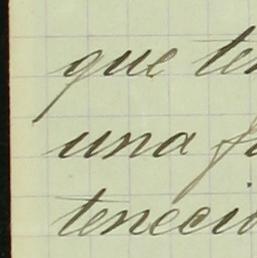 que te
una f
teneci